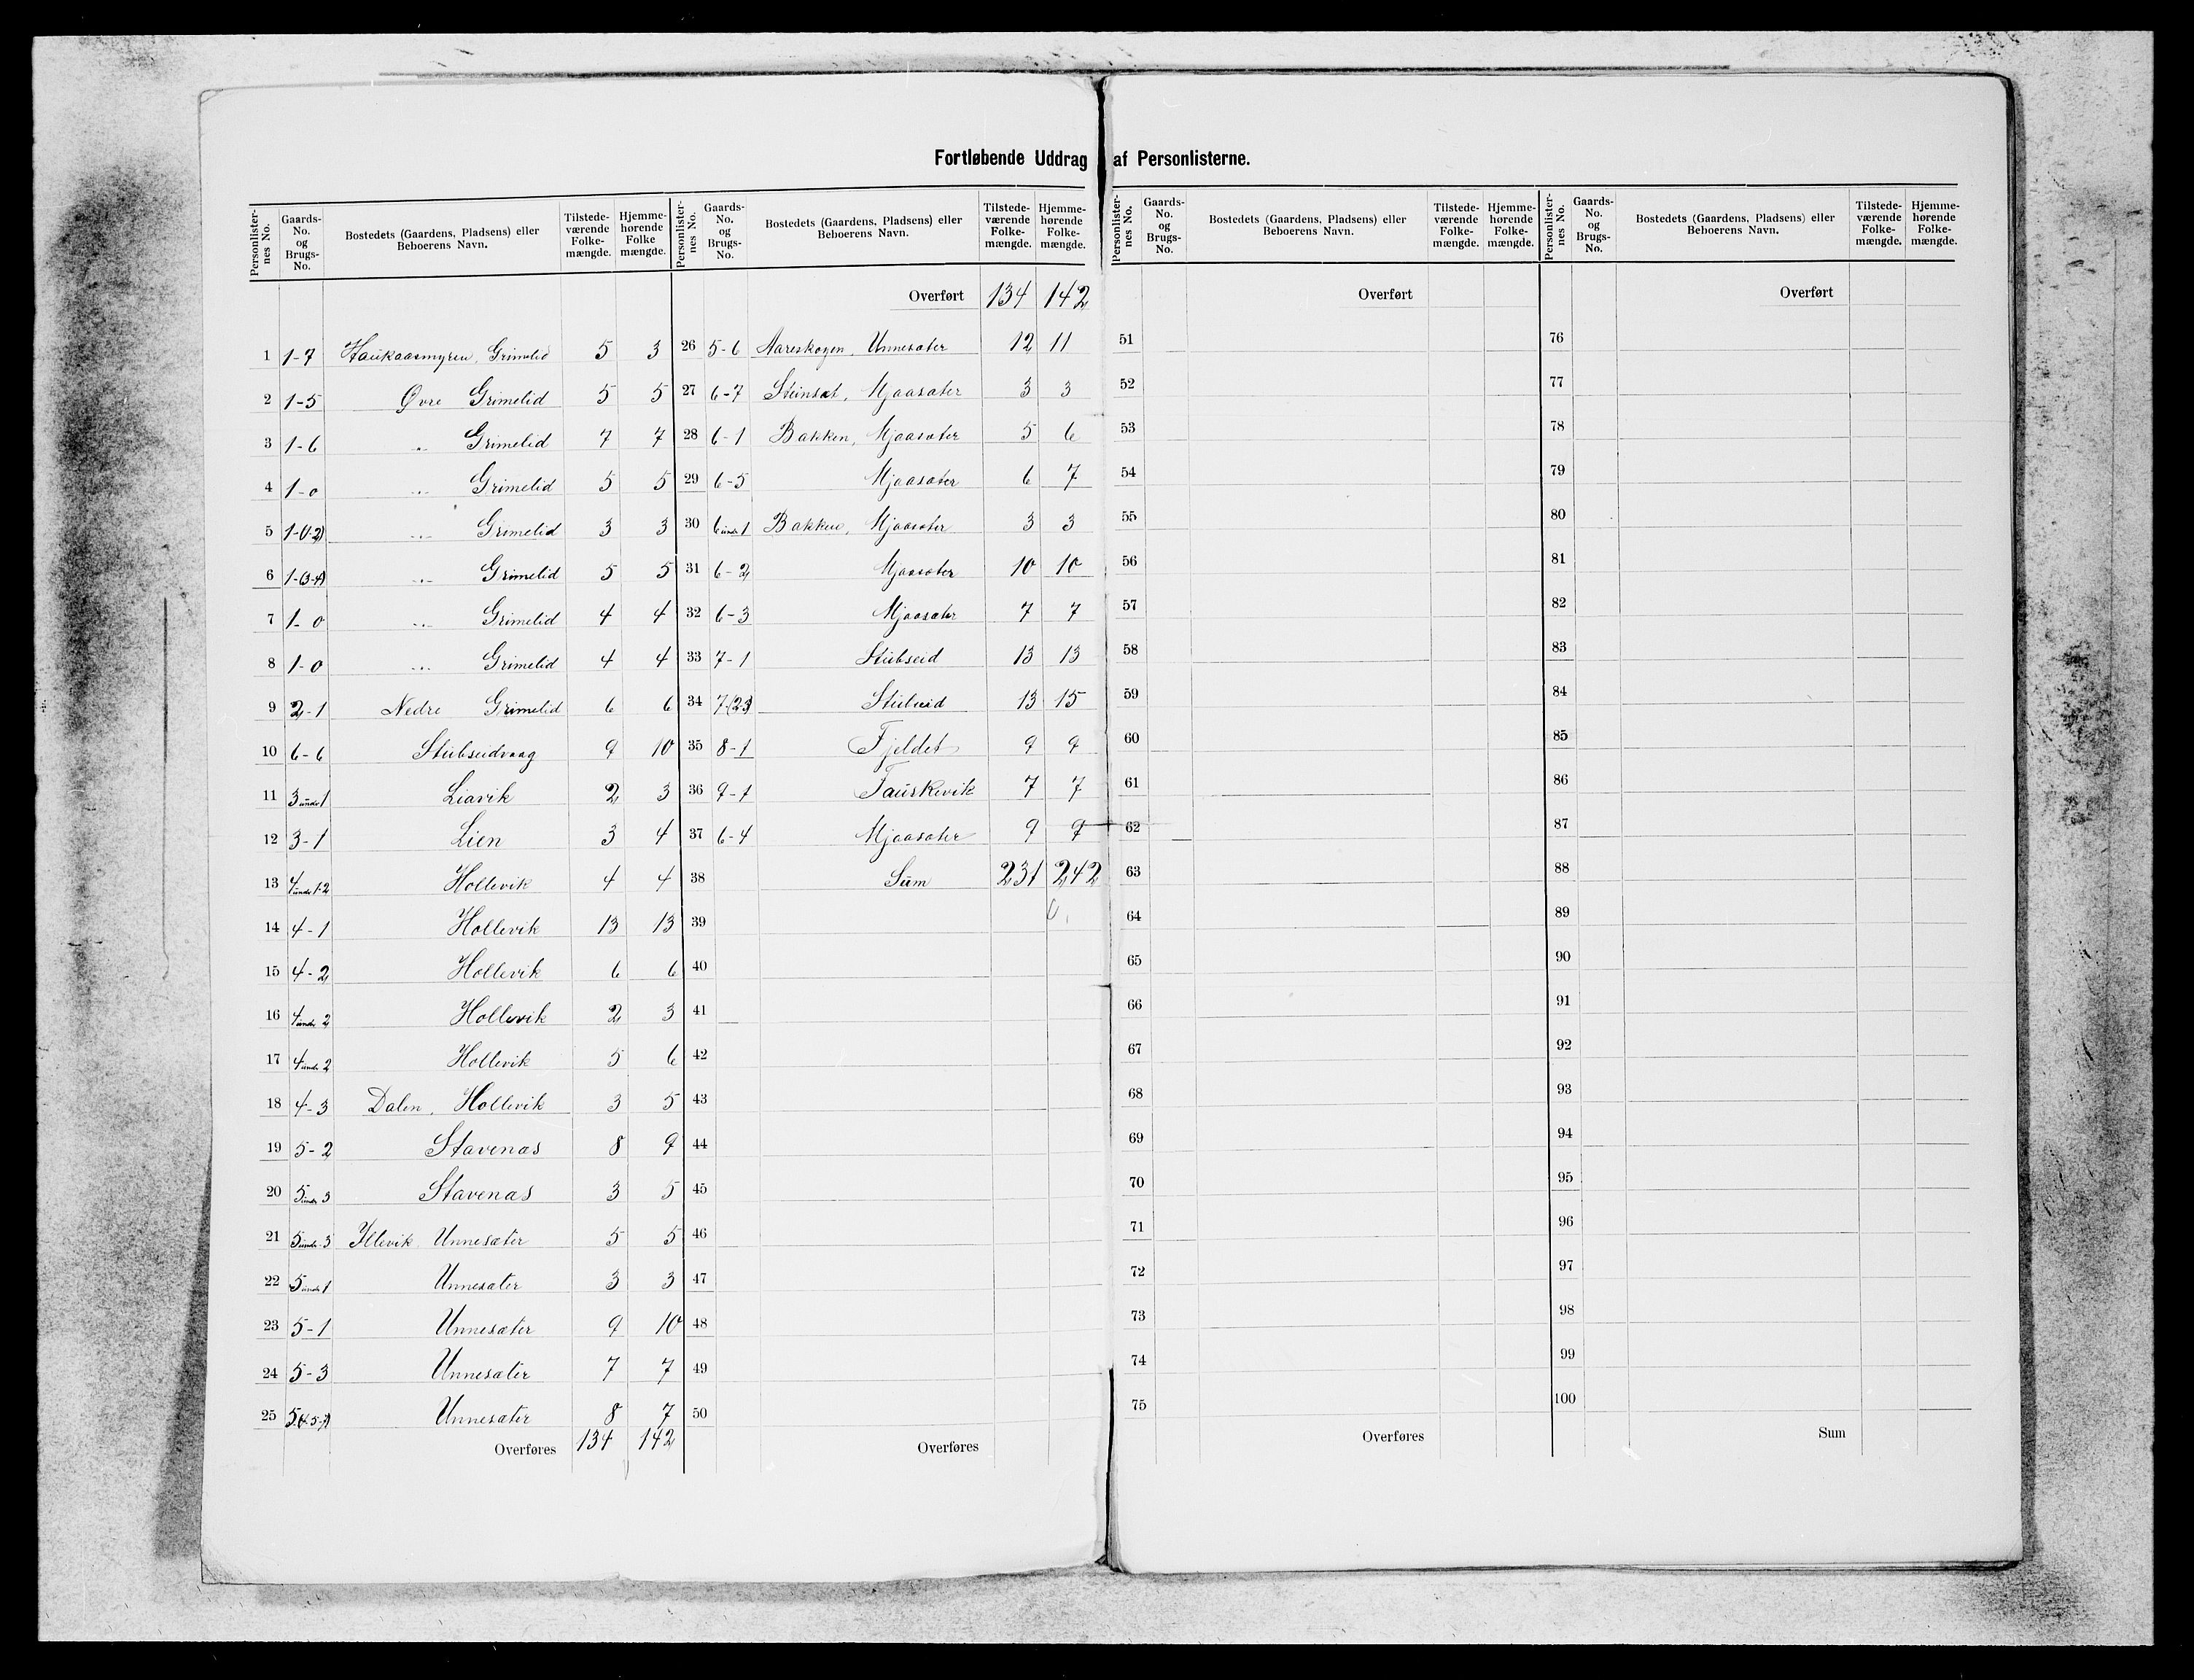 Fortløbende Uddrag af Personlisterne.
Personlisternes No. | Gaards-No. og Brugs-No. | Bostedets (Gaardens, Pladsens) eller Beboerens Navn. | Tilstedeværende Folkemængde. | Hjemmehørende Folke mængde.
1 1-7 Haukaasmyren, Grimelid 5 3
2 1-5 Øvre Grimelid 5 5
3 1-6 „ Grimelid 7 7
4 1-0 „ Grimelid 5 5
5 1-(1-2) „ Grimelid 3 3
6 1-(3-4) „ Grimelid 5 5
7 1-0 „ Grimelid 4 4
8 1-0 „ Grimelid 4 4
9 2-1 Nedre Grimelid 6 6
10 6-6 Stubseidvaag 9 10
11 3 under 1 Liavik 2 3
12 3-1 Lien 3 4
13 4 under 1-2 Hollevik 4 4
14 4-1 Hollevik 13 13
15 4-2 Hollevik 6 6
16 4 under 2 Hollevik 2 3
17 4 under 2 Hollevik 5 6
18 4-3 Dalen, Hollevik 3 5
19 5-2 Stavenæs 8 9
20 5 under 3 Stavenæs 3 5
21 5 under 3 Illevik Unnesæter 5 5
22 5 under 1 Unnesæter 3 3
23 5-1 Unnesæter 9 10
24 5-3 Unnesæter 7 7
25 5 (4-5-7) Unnesæter 8 7
Overføres 134 142
Personlisternes No. | Gaards-No. og Brugs-No. | Bostedets (Gaardens, Pladsens) eller Beboerens Navn. | Tilstedeværende Folkemængde. | Hjemmehørende Folkemængde.
Overført 134 142
26 5-6 Aareskogen, Unnesæter 12 11
27 6-7 Stinsæt, Mjaasæter 3 3
28 6-1 Bakken, Mjaasæter 5 6
29 6-5 Mjaasæter 6 7
30 6 under 1 Bakken, Mjaasæter 3 3
31 6-2 Mjaasæter 10 10
32 6-3 Mjaasæter 7 7
33 7-1 Stubseid 13 13
34 7-(2-3) Stubseid 13 15
35 8-1 Fjeldet 9 9
36 9-1 Fauskevik 7 7
37 6-4 Mjaasæter 9 9
38 Sum 231 242
39
40
41
42
43
44
45
46
47
48
49
50
Overføres
Personlisternes No. | Gaards-No. og Brugs-No. | Bostedets (Gaardens, Pladsens) eller Beboerens Navn. | Tilstedeværende Folkemængde. | Hjemmehørende Folkemængde.
Overført
51
52
53
54
55
56
57
58
59
60
61
62
63
64
65
66
67
68
69
70
71
72
73
74
75
Overføres
Personlisternes No. | Gaards-No. og Brugs-No. | Bostedets (Gaardens, Pladsens) eller Beboerens Navn. | Tilstedeværende Folkemængde. | Hjemmehørende Folkemængde.
Overført
76
77
78
79
80
81
82
83
84
85
86
87
88
89
90
91
92
93
94
95
96
97
98
99
100
Sum